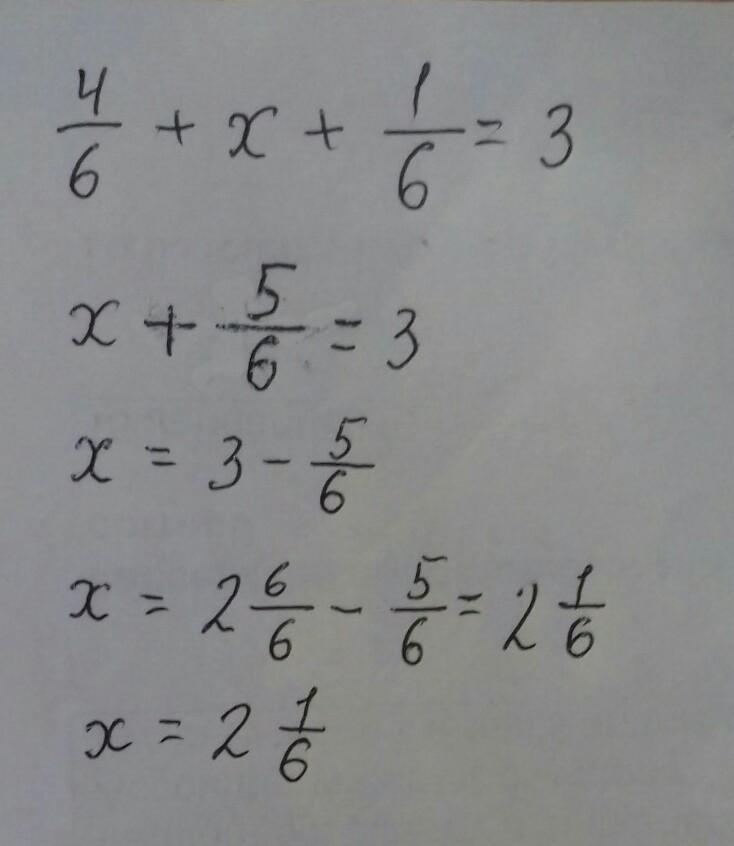 4/6 + x + 1/6 = 3
x + 5/6 = 3
x = 3 - 5/6
x = 2 6/6 - 5/6 = 2 1/6
x = 2 1/6